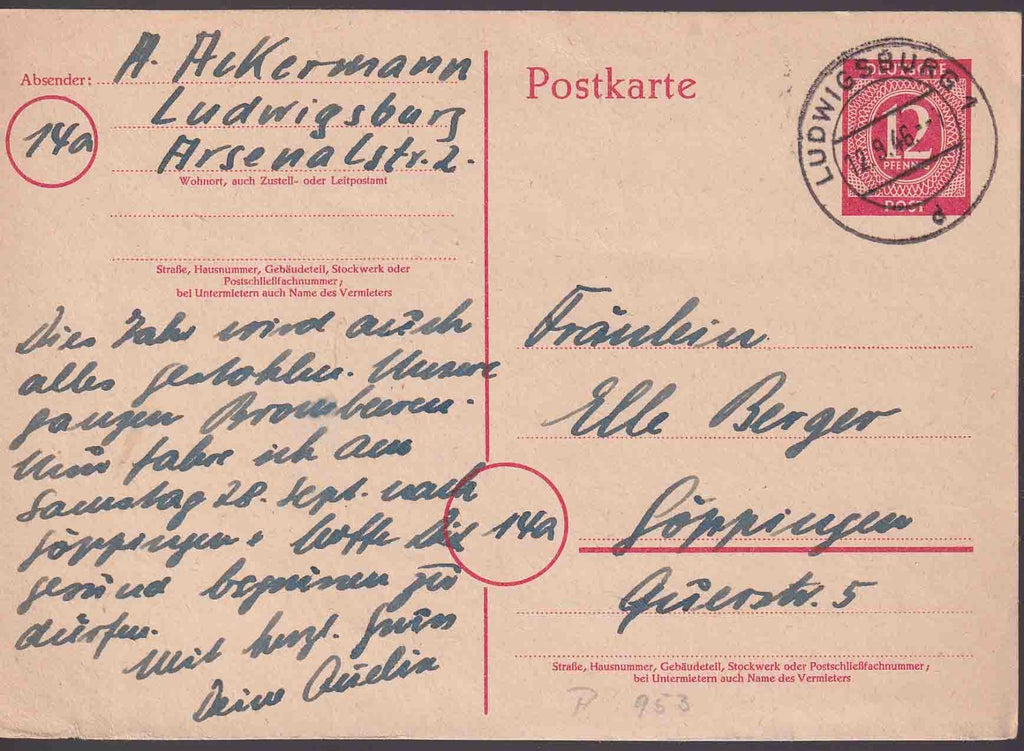 Absender: A. Ackermann
Ludwigsburg
14a
Arsenalstr. 2.
Wohnort, auch Zustell- oder Leitpostamt
Straße, Hausnummer, Gebäudeteil, Stockwerk oder
Postschließfachnummer;
bei Untermietern auch Name des Vermieters
Dies Jahr wird auch
alles gestohlen. Unsere
ganzen Brombeeren.
Nun fahre ich am
Samstag 28. Sept. nach
Göppingen + hoffe Dich
gesund begrüssen zu
dürfen.
Mit herzl. Gruss
Deine
Postkarte
LUDWIGSBURG 1
12.9.46.--
DEUTSCHE
12
PFENNIG
POST
Fräulein
Elle Berger
14a
Göppingen
Querstr. 5
Straße, Hausnummer, Gebäudeteil, Stockwerk oder Postschließfachnummer;
bei Untermietern auch Name des Vermieters
P 953